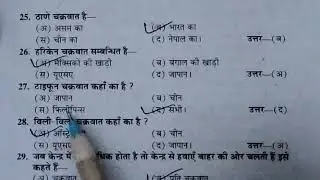 25. ठाणे चक्रवात है—
(अ) असम का (ब) भारत का
(स) चीन का (द) नेपाल का। उत्तर—(ब)
26. हरिकेन चक्रवात सम्बन्धित है—
(अ) मैक्सिको की खाड़ी (ब) बंगाल की खाड़ी
(स) यूएसए (द) जापान। उत्तर—(अ)
27. टाइफून चक्रवात कहाँ का है ?
(अ) जापान (ब) चीन
(स) फिलीपिंस (द) सभी। उत्तर—(द)
28. विली-विली चक्रवात कहाँ का है ?
(ब) चीन
(स) यूएसए (द) जापान। उत्तर—(अ)
29. जब केन्द्र में होता है तो केन्द्र से हवाएँ बाहर की ओर चलती हैं इसे
कहते हैं—